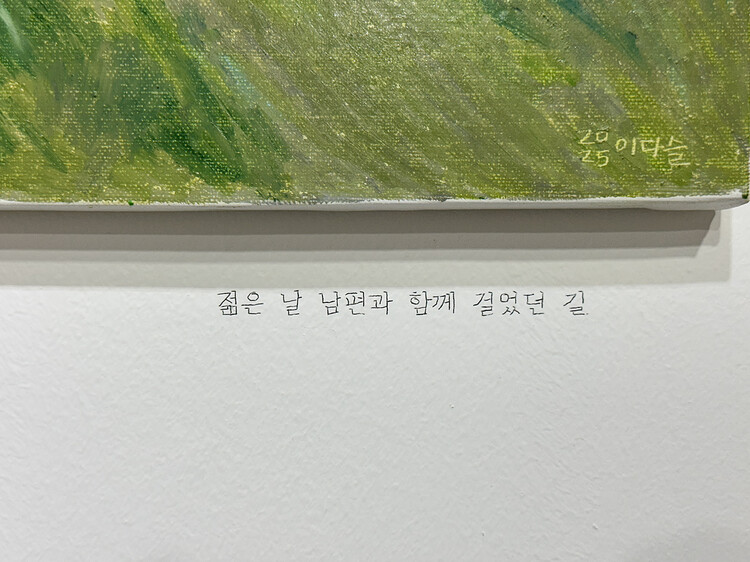 20
25 이다슬
젊은 날 남편과 함께 걸었던 길